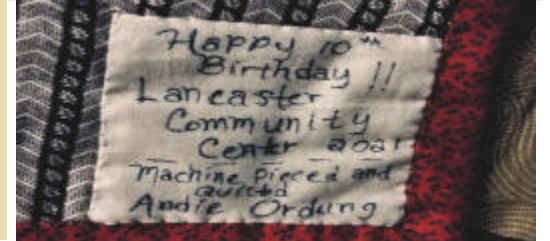 Happy 10th
Birthday !!
Lancaster
Community
Centr 2021
Machine Pieced and
quilted
Andie Ordung